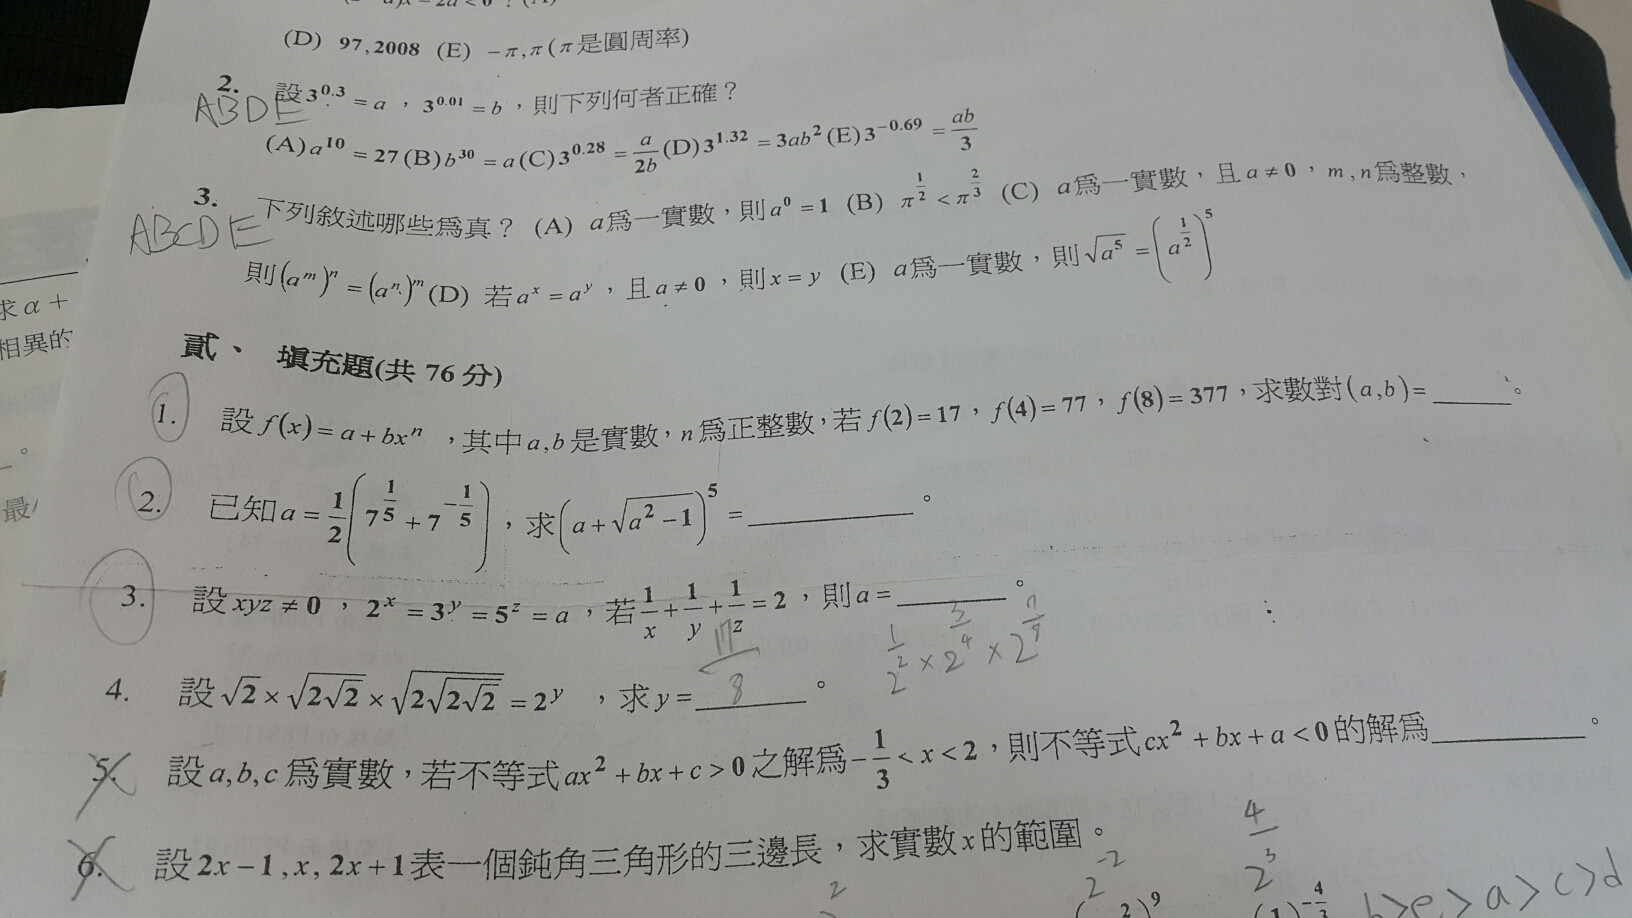 (D) 97,2008 (E) −π,π(π是圓周率)
2. 設3^0.3 = a ，3^0.01 = b，則下列何者正確？
ABDE
(A)a^10 = 27(B)b^30 = a(C)3^0.28 = a/2b (D)3^1.32 = 3ab^2(E)3^−0.69 = ab/3
3. 下列敘述哪些為真？ (A) a為一實數，則a^0 = 1 (B) π^(1/2) < π^(2/3) (C) a為一實數，且a ≠ 0，m,n為整數，
ABCDE
則(a^m)^n = (a^n)^m(D) 若a^x = a^y，且a ≠ 0，則x = y (E) a為一實數，則√(a^5) = (a^(1/2))^5
求α +
相異的
貳、 填充題(共 76 分)
1. 設f(x) = a + bx^n ，其中a,b是實數，n為正整數，若f(2) = 17，f(4) = 77，f(8) = 377，求數對(a,b) = ______。
2. 已知a = 1/2(7^(1/5) + 7^(−1/5))，求(a + √(a^2 − 1))^5 = ______。
3. 設xyz ≠ 0，2^x = 3^y = 5^z = a，若1/x + 1/y + 1/z = 2，則a = ______。
4. 設√2 × √(2√2) × √(2√(2√2)) = 2^y ，求y = 17/8 。
5. 設a,b,c為實數，若不等式ax^2 + bx + c > 0之解為−1/3 < x < 2，則不等式cx^2 + bx + a < 0的解為______。
6. 設2x − 1, x, 2x + 1表一個鈍角三角形的三邊長，求實數x的範圍。
b>e>a>c>d